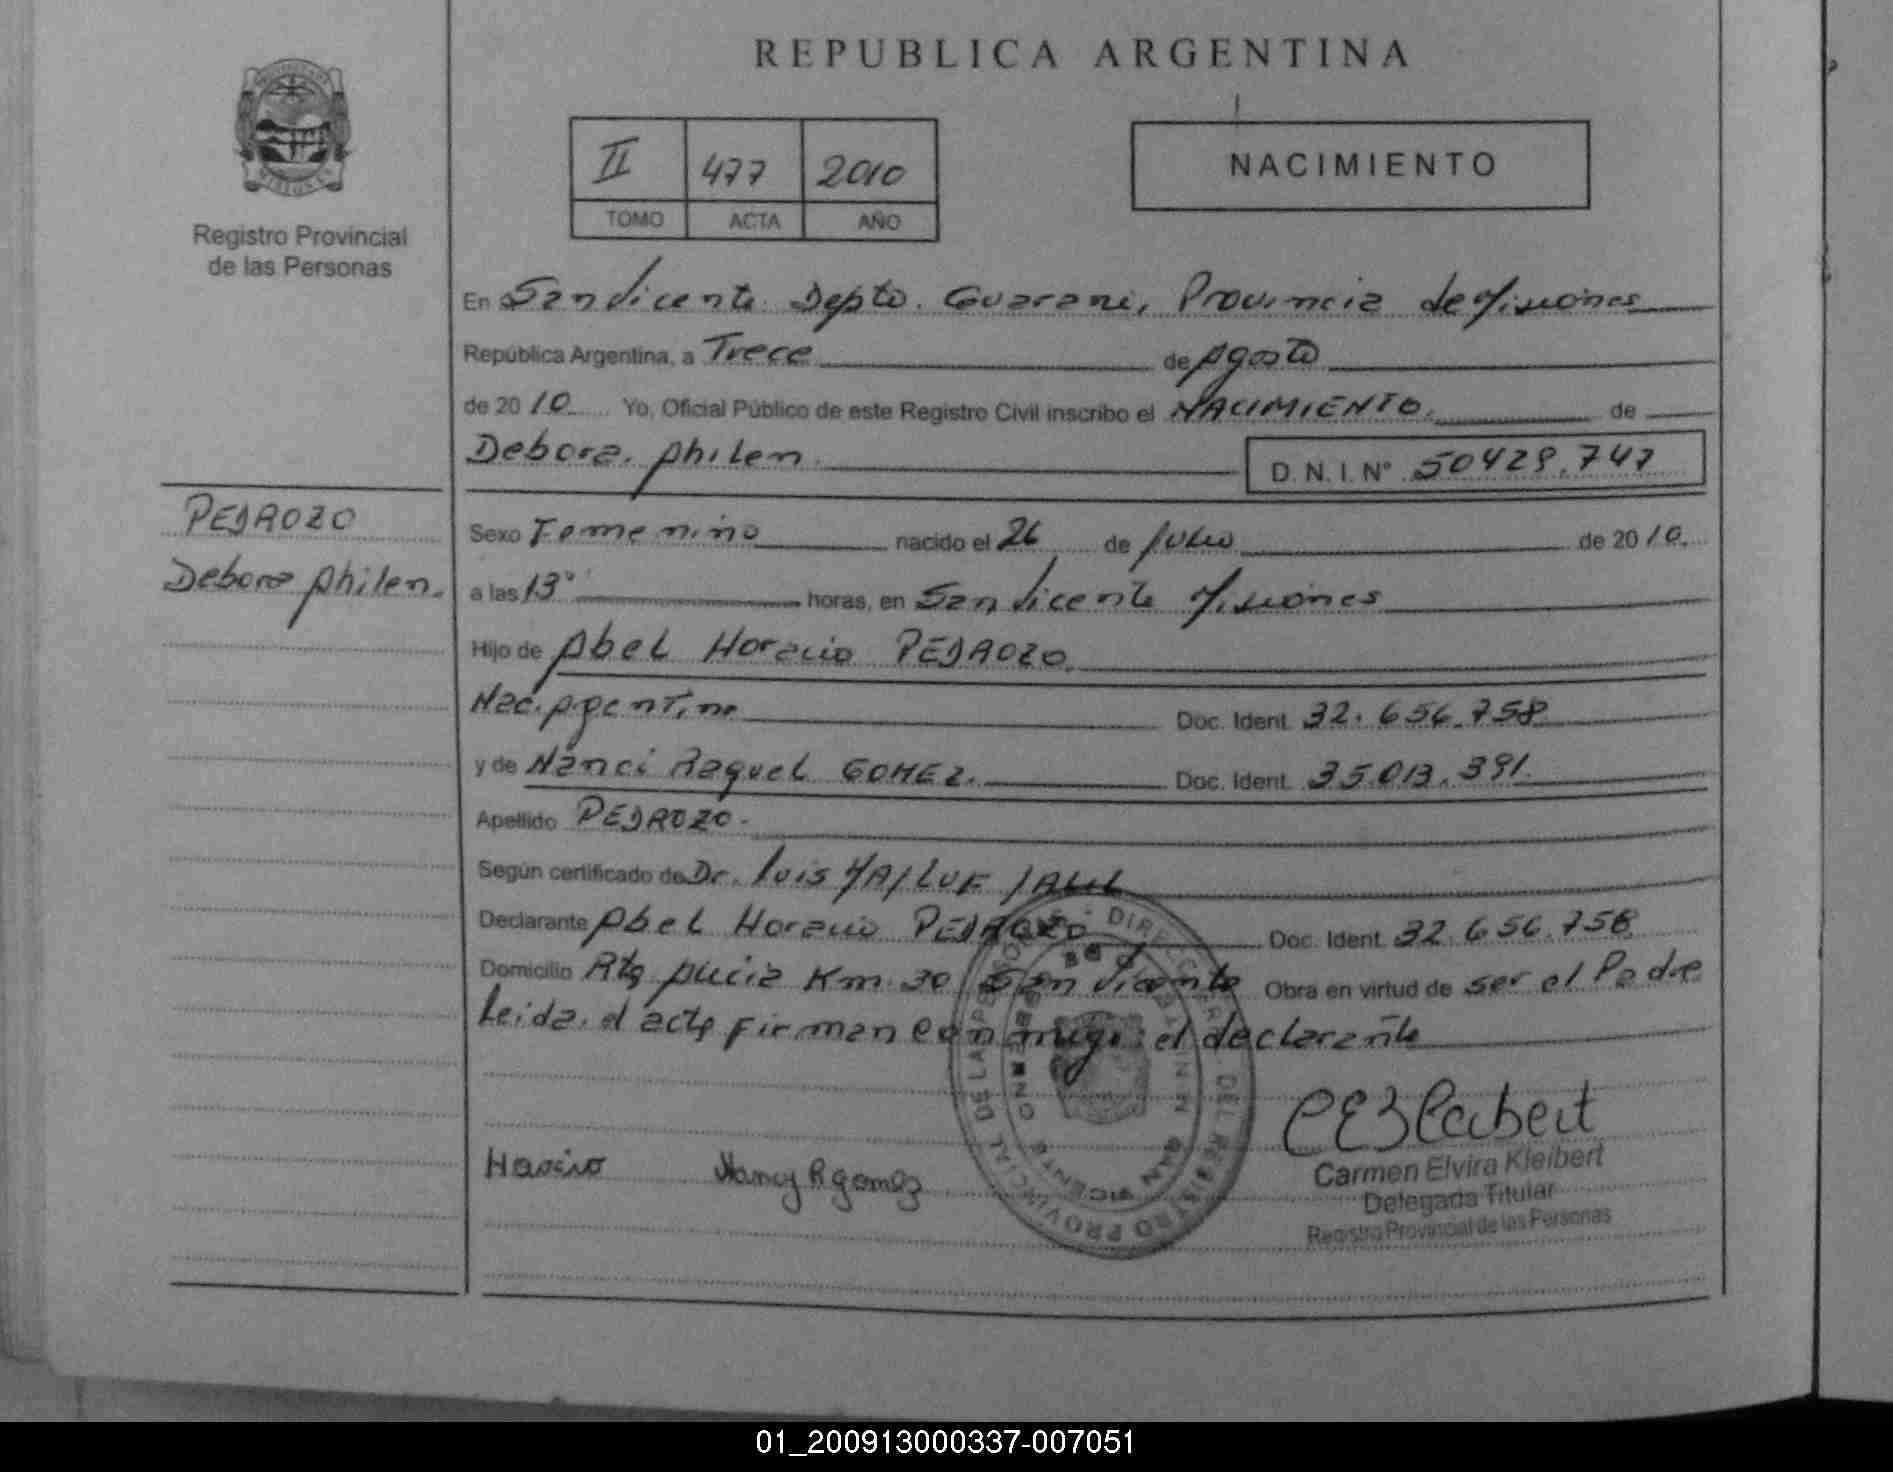 REPUBLICA ARGENTINA
MISIONES
Registro Provincial
de las Personas
II 477 2010
TOMO ACTA AÑO
NACIMIENTO
En San Vicente Depto. Guarani, Provincia de Misiones
República Argentina, a Trece de Agosto
de 2010 Yo, Oficial Público de este Registro Civil inscribo el NACIMIENTO. de
Debora. Ahilen. D. N. I. Nº 50429.747
PEDROZO
Debora Ahilen.
Sexo Femenino nacido el 26 de Julio de 2010.
a las 13º horas, en San Vicente Misiones
Hijo de Abel Horacio PEDROZO.
Nac. Agentino Doc. Ident. 32.656.758
y de Nanci Raquel GOMEZ. Doc. Ident. 35.013.391.
Apellido PEDROZO.
Según certificado de Dr. Luis
Declarante Abel Horacio PEDROZO Doc. Ident. 32.656.758
Domicilio Rta Km. 30 San Vicente Obra en virtud de ser el Padre
Leida. el acta Firman conmigo: el declarante
DIRECCION DEL REGISTRO PROVINCIAL DE LAS PERSONAS
SAN VICENTE
Horacio Nancy R gomez
CEKleibert
Carmen Elvira Kleibert
Delegada Titular
Registro Provincial de las Personas
01_200913000337-007051